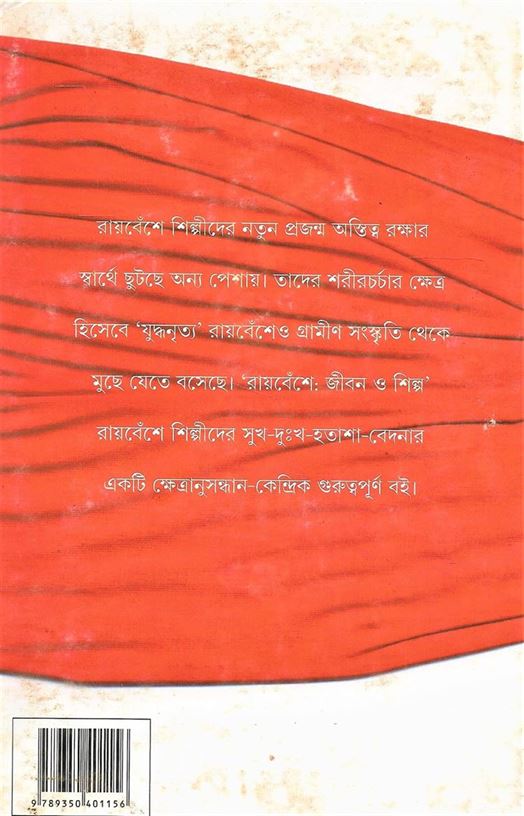 রায়বেঁশে শিল্পীদের নতুন প্রজন্ম অস্তিত্ব রক্ষার
স্বার্থে ছুটছে অন্য পেশায়। তাদের শরীরচর্চার ক্ষেত্র
হিসেবে ‘যুদ্ধনৃত্য’ রায়বেঁশেও গ্রামীণ সংস্কৃতি থেকে
মুছে যেতে বসেছে। ‘রায়বেঁশে: জীবন ও শিল্প’
রায়বেঁশে শিল্পীদের সুখ-দুঃখ-হতাশা-বেদনার
একটি ক্ষেত্রানুসন্ধান-কেন্দ্রিক গুরুত্বপূর্ণ বই।
9 789350 401156